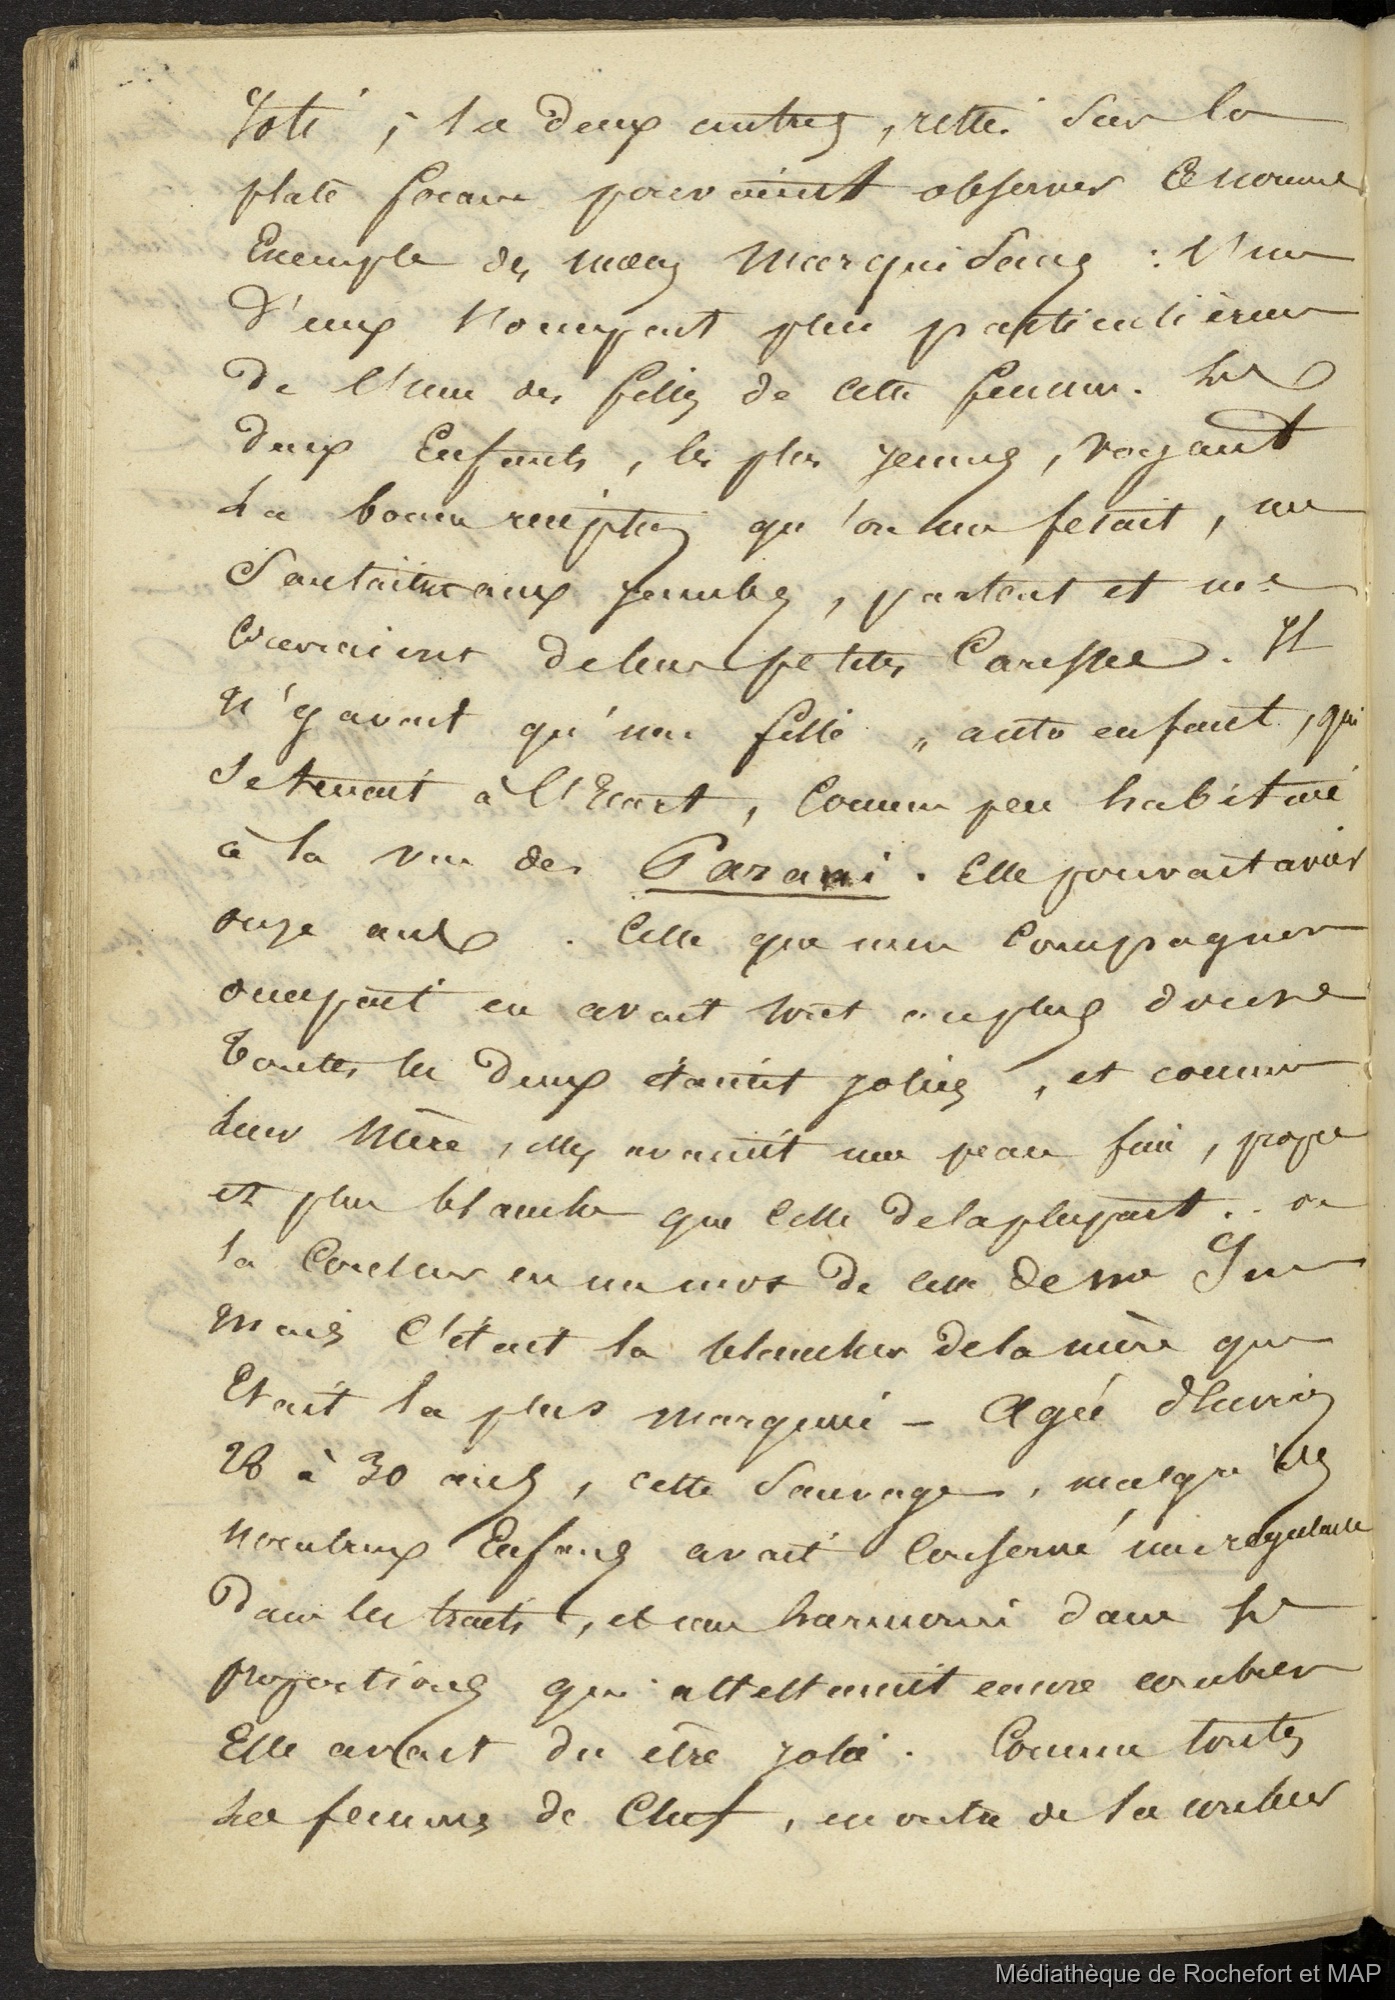 Yoti ; les deux autres, resté sur la
plate forme pouvaient observer ce nouvel
Exemple des mœurs Marquisiens : l'un
d'eux s'occupait plus particulièrement
de l'une des filles de cette femme. Les
deux Enfants, les plus jeunes, voyant
La bonne reception qu'on me fesait, me
Sautaient aux jambes, partout et me
Couvraient de leurs petites Caresses. Il
n'y avait qu'une fille, autre enfant, qui
Se tenait à l'Ecart, Comme peu habitué
à la vue des Parani. Elle pouvait avoir
onze ans. Celle que mon Compagnon
occupait en avait tout au plus douze
Toutes les deux étaient jolies, et comme
Leur Mère, elles avaient une peau fine, propre
et plus blanche que Celle de la plupart.. de
la Couleur en un mot de celle de nos
Mais C'était la blancheur de la mère qui
Etait la plus marquée – Agée d'Environ
28 à 30 ans, cette Sauvage, malgré des
nombreux Enfans avait Conservé une régularité
Dans les traits, et une harmonie dans les
proportions qui attestaient encore combien
Elle avait du être jolie. Comme toutes
Les femmes de Chef, en outre de la couleur
Médiathèque de Rochefort et MAP